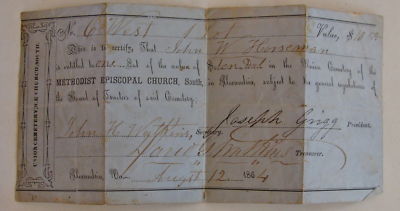 No. 6 West 1 Lot Value, $
This is to certify, That John W.
is entitled to one Part of the in the Union Cemetery of the
METHODIST EPISCOPAL CHURCH, South, in Alexandria, subject to the general regulations of
the Board of Trustees of said Cemetery.
Joseph Grigg President.
John H. Watkins, Secretary.
David Watkins Treasurer.
Alexandria, Va. August 12 1864
UNION CEMETERY, M. E. CHURCH, SOUTH.